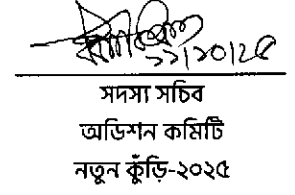 ২১/১০/২৫
সদস্য সচিব
অডিশন কমিটি
নতুন কুঁড়ি-২০২৫